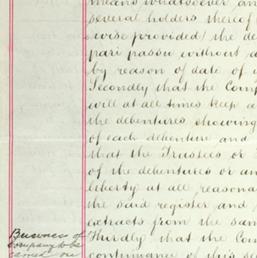 means whatsoever an
several holders thereof
wise provided) the de
pari passu without a
by reason of date of
Secondly that the Comp
will at all times keep a
the debentures showing
of each debenture and
that the Trustees or
of the debentures or an
liberty at all reasona
the said register and
extracts from the sam
Thirdly that the Com
continuance of this se
Business of
Company to be
carried on